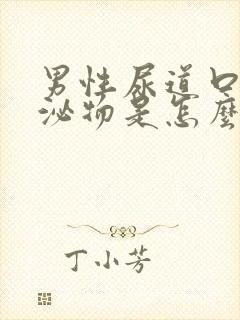 男性尿道口
泌物是怎麼
丁小芳